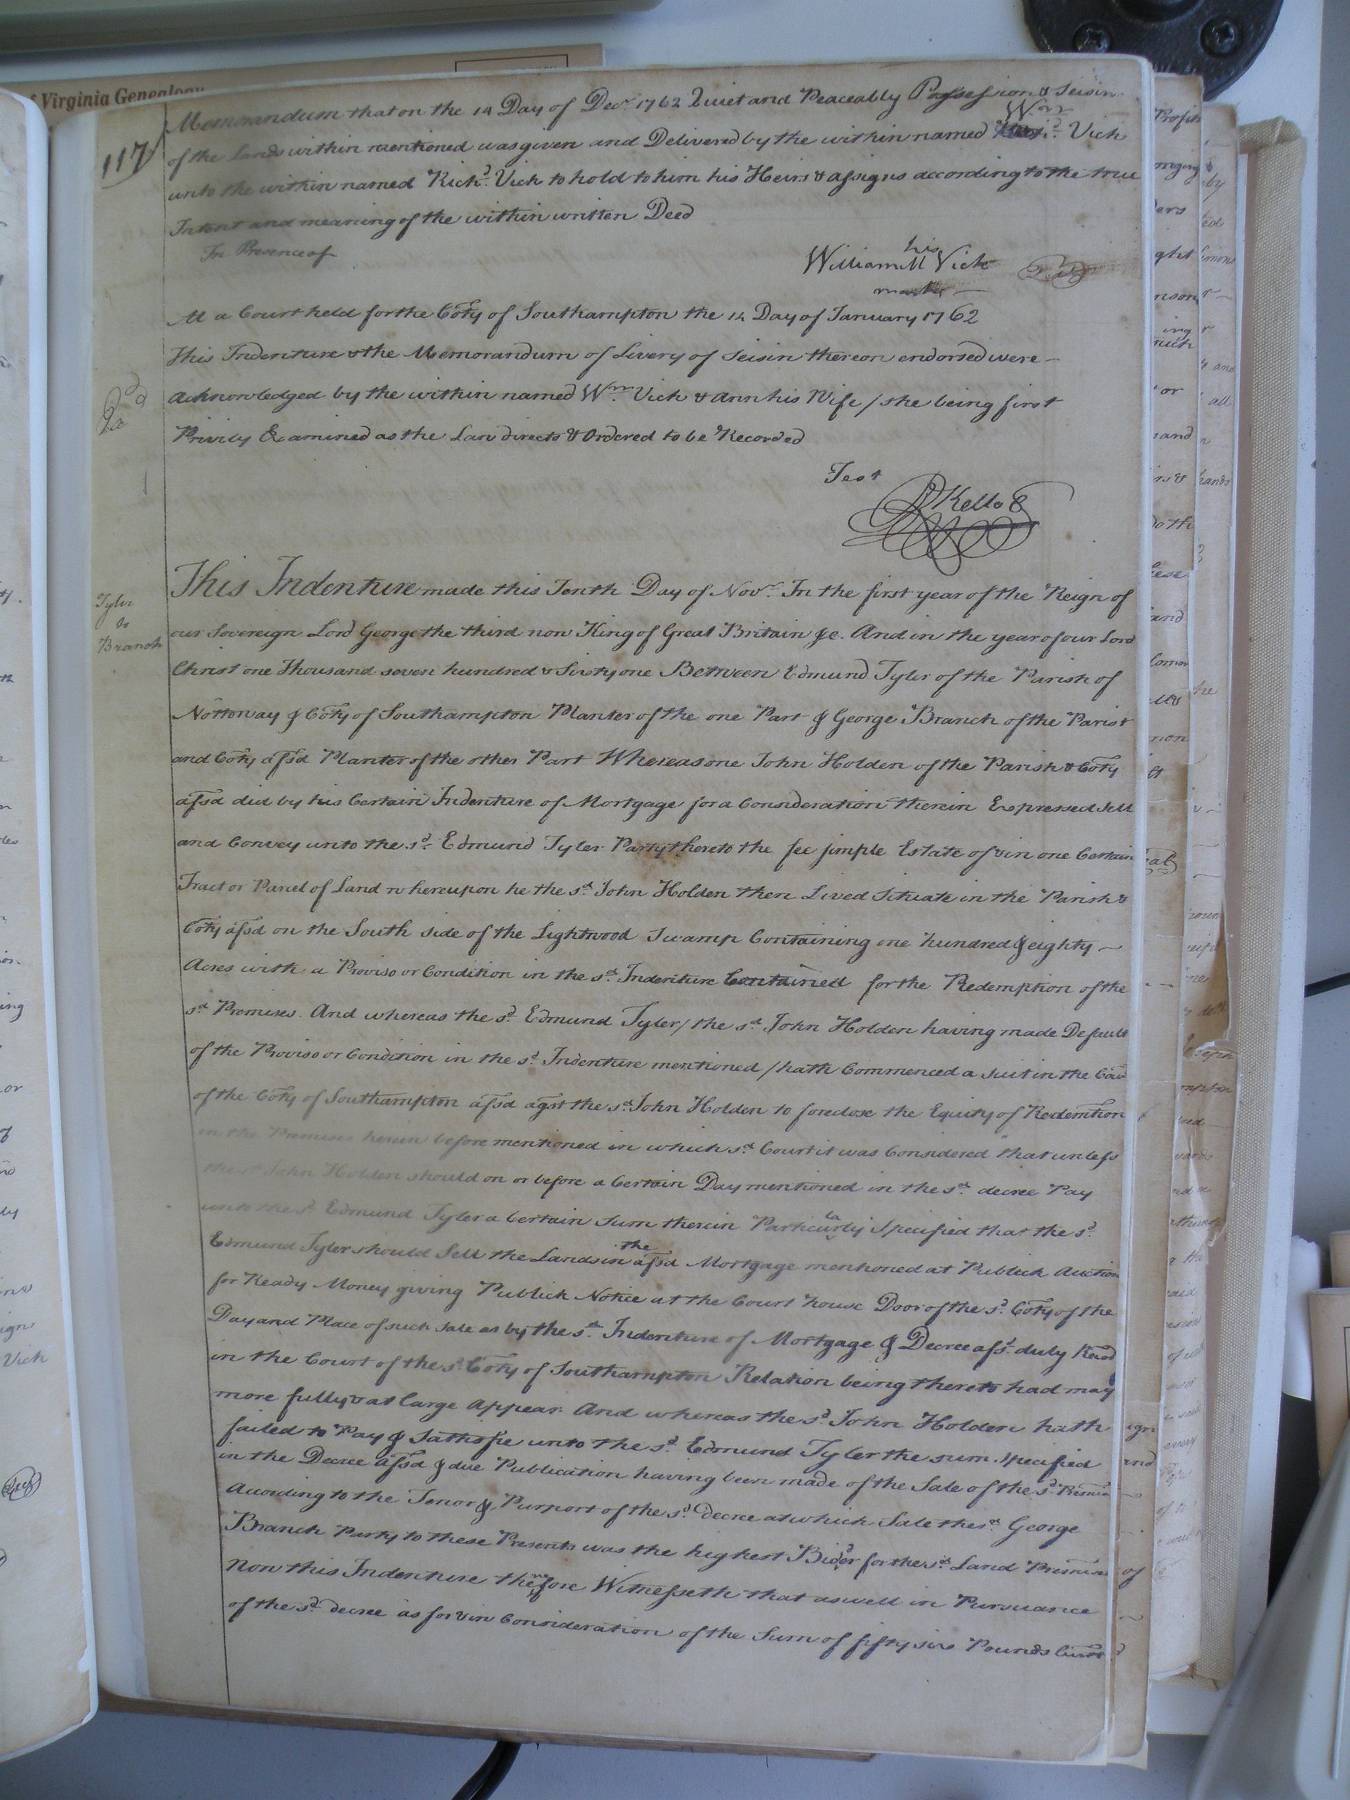 Virginia Genealogy
117
Memorandum that on the 14 Day of Decr. 1762 Quiet and Peaceably Possession & Seisin
of the Lands within mentioned was given and Delivered by the within named Wm Vick
unto the within named Richd. Vick to hold to him his Heirs & assigns according to the true
Intent and meaning of the within written Deed
In Presence of
his
William M Vick
mark
At a Court held for the Coty of Southampton the 14 Day of January 1762
This Indenture & the Memorandum of Livery of Seisin thereon endorsed were
acknowledged by the within named Wm. Vick & Ann his Wife / she being first
Privily Examined as the Law directs & Ordered to be Recorded
Test
R Kello C
Tyler
to
Branch
This Indenture made this Tenth Day of Novr. In the first year of the Reign of
our Sovereign Lord George the third now King of Great Britain &c. And in the year of our Lord
Christ one Thousand seven hundred & Sixty one Between Edmund Tyler of the Parish of
Nottoway & Coty of Southampton Planter of the one Part & George Branch of the Parish
and Coty afsd Planter of the other Part Whereas one John Holden of the Parish & Coty
afsd did by his Certain Indenture of Mortgage for a Consideration therein Expressed Sell
and Convey unto the sd. Edmund Tyler Party thereto the fee simple Estate of & in one Certain
Tract or Parcel of Land whereupon he the sd. John Holden then Lived Situate in the Parish &
Coty afsd on the South side of the Lightwood Swamp Containing one hundred & eighty
Acres with a Proviso or Condition in the sd. Indenture Contained for the Redemption of the
sd Premises. And whereas the sd. Edmund Tyler / the sd. John Holden having made Default
of the Proviso or Condition in the sd. Indenture mentioned / hath Commenced a suit in the Cou
of the Coty of Southampton afsd agst the sd. John Holden to foreclose the Equity of Redemtion
in the Premises herein before mentioned in which sd. Court it was Considered that unless
the sd John Holden should on or before a Certain Day mentioned in the sd. decree Pay
unto the sd Edmund Tyler a Certain Sum therein Particularly Specified that the sd.
Edmund Tyler should Sell the Lands in the afsd Mortgage mentioned at Publick Auction
for Ready Money giving Publick Notice at the Court house Door of the sd. Coty of the
Day and Place of such Sale as by the sd. Indenture of Mortgage & Decree afsd. duly Recod
in the Court of the sd. Coty of Southampton Relation being thereto had may
more fully & at large appear And whereas the sd. John Holden hath
failed to Pay & Sattisfie unto the sd. Edmund Tyler the sum specified
in the Decree afsd & due Publication having been made of the Sale of the sd. Premis
Acoiding to the Tenor & Purport of the sd. decree at which Sale the sd. George
Branch Party to these Presents was the highest Bidder for the sd. Land Premises
Now this Indenture therefore Witnesseth that aswell in Pursuance
of the sd. decree as for & in Consideration of the Sum of fifty six Pounds Curt